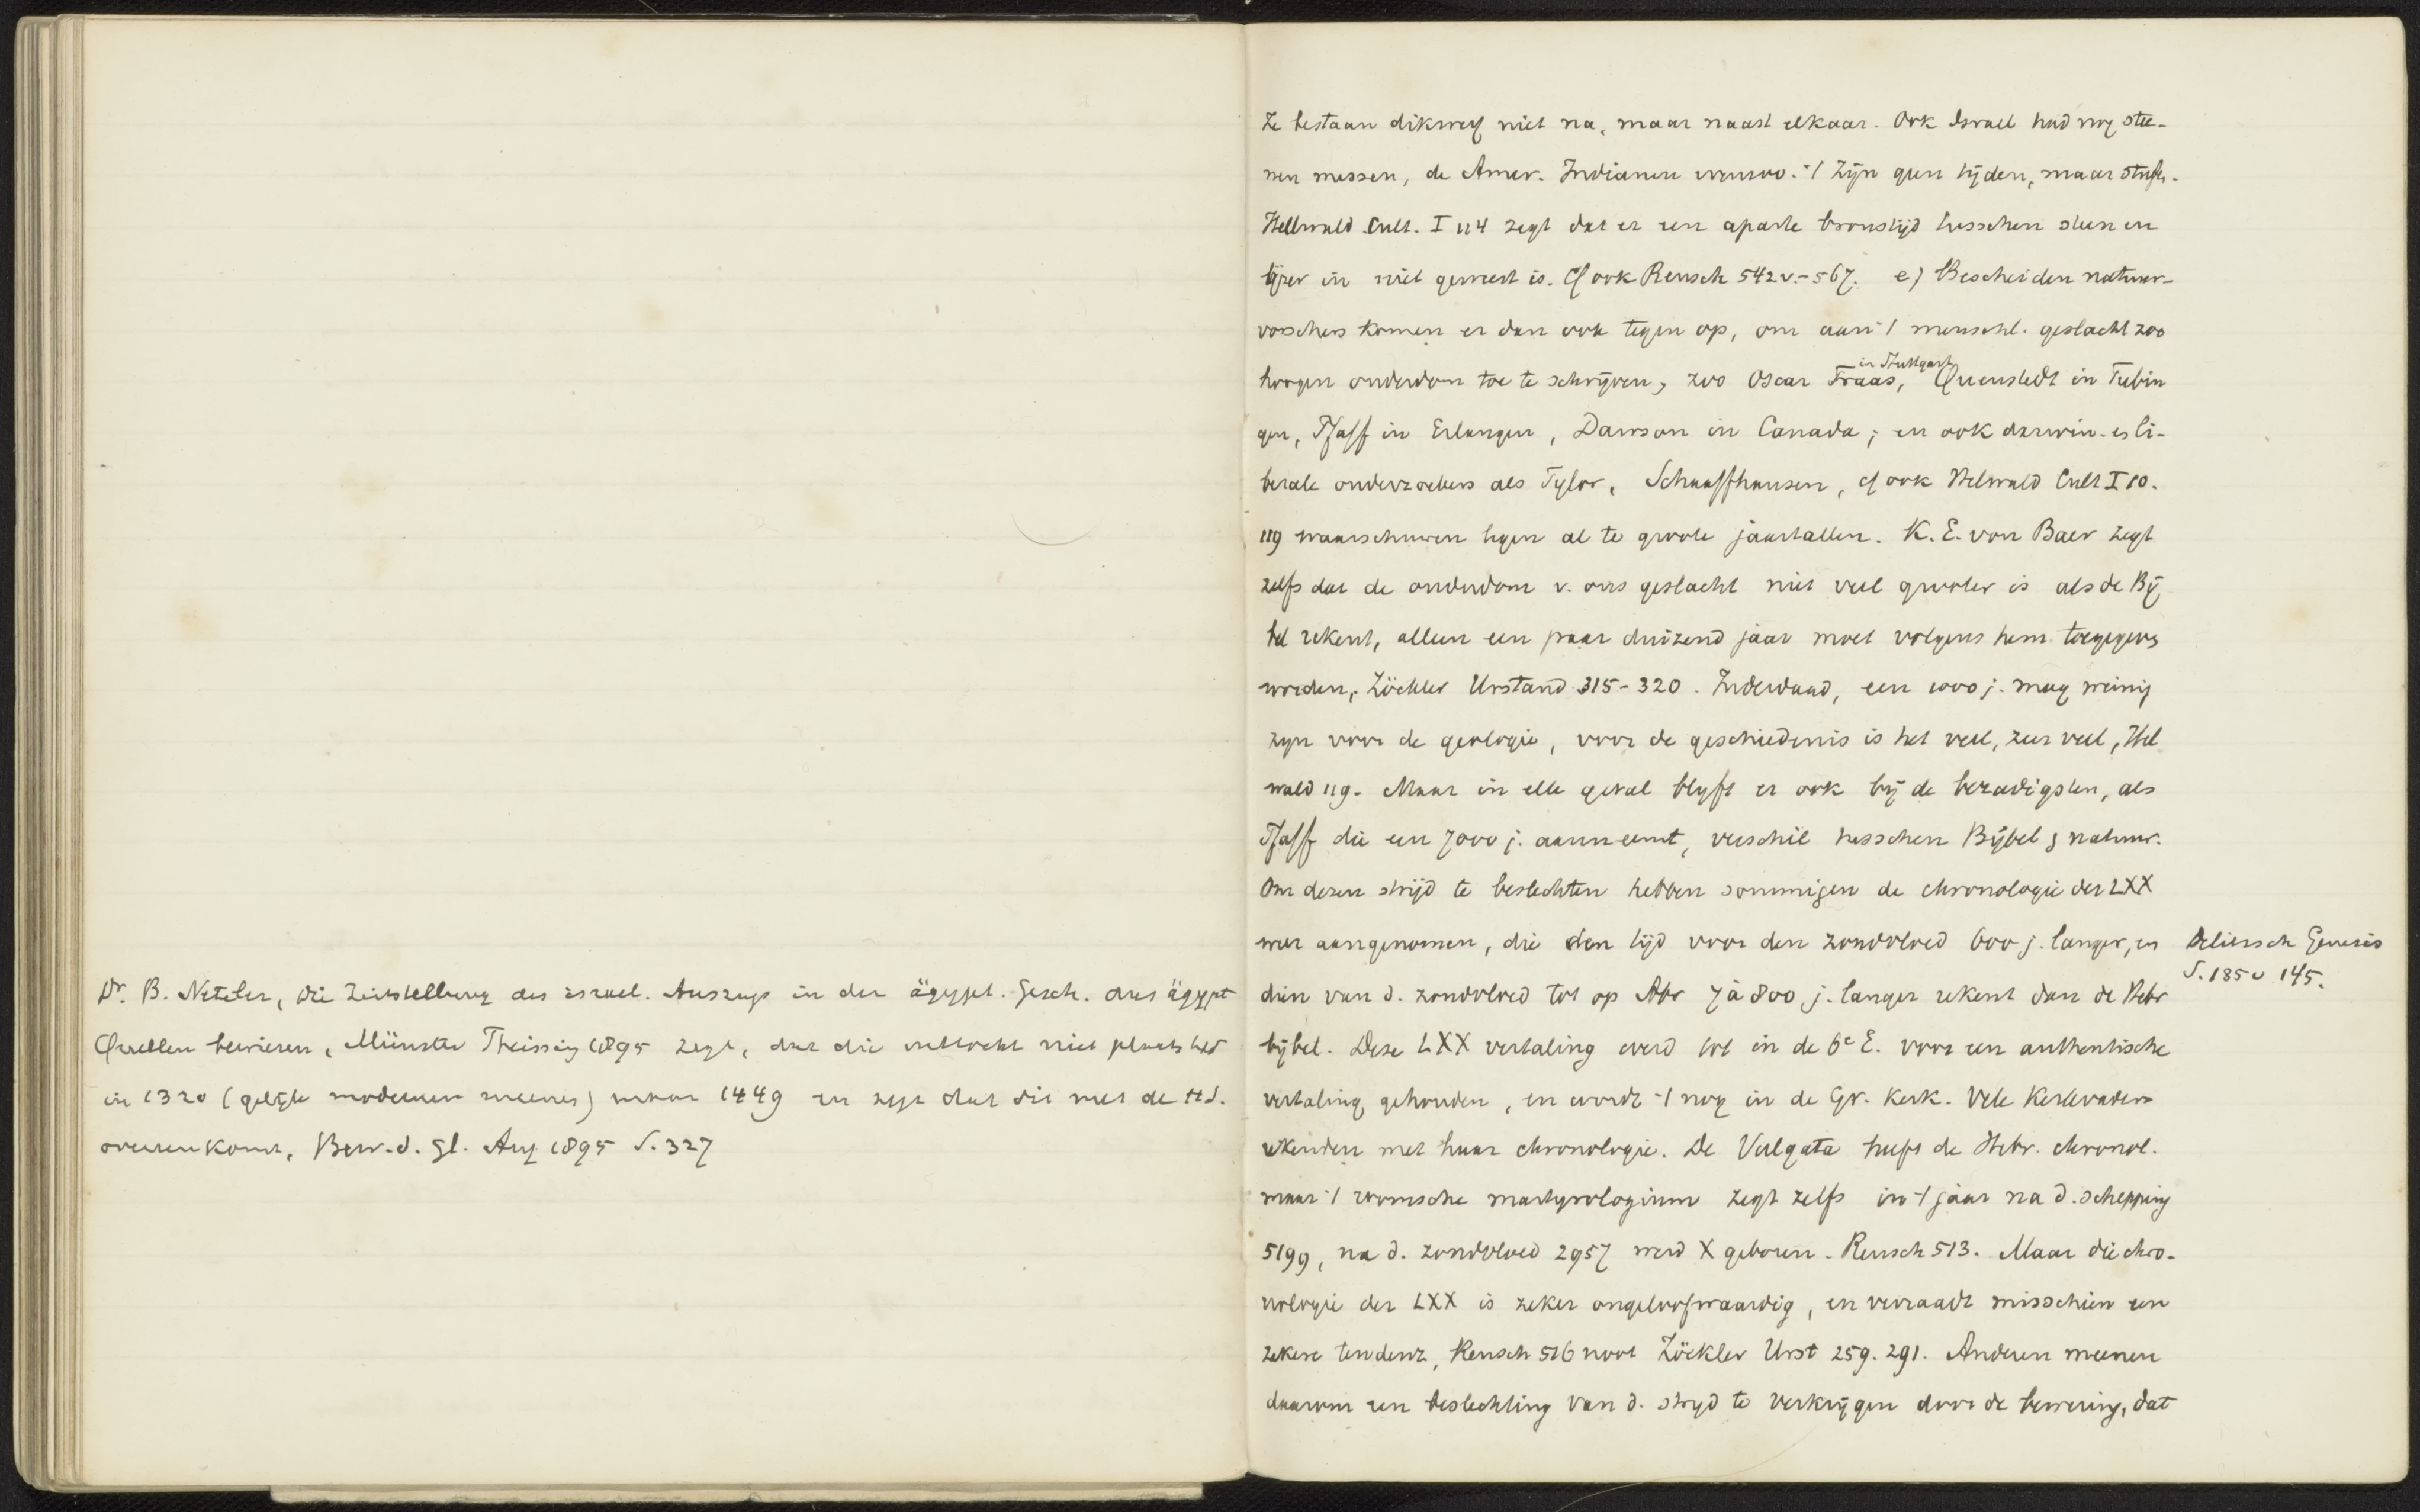 Dr. B. Neteler, Die Zeitstellung des israel. Auszugs in der ägypt. Gesch. aus ägypt
Quellen bewiesen, Münster Theissing 1895 zegt, dat die uittocht niet plaats had
in 1320 (gelijk modernen meenen) maar 1449 en zegt dat dit met de H.S.
overeenkomt, Bew. d. Gl. Aug 1895 S. 327
Ze bestaan dikwerf niet na, maar naast elkaar. Ook Israel had nog stee-
nen messen, de Amer. Indianen evenzoo. -/ Zijn geen tijden, maar stufen.
Hellwald Cult. I 114 zegt dat er een aparte bronstijd tusschen steen en
ijzer in niet geweest is. Cf ook Reusch 542 v. - 567. e) Bescheiden natuur-
vorschers komen er dan ook tegen op, om aan -/ menschl. geslacht zoo
hoogen ouderdom toe te schrijven, zoo Oscar Fraas, in Stuttgart Quenstedt in Tubin
gen, Pfaff in Erlangen, Dawson in Canada; en ook darwin. es li-
berale onderzoekers als Tylor, Schaaffhausen, cf ook Helwald Cult I 10.
119 waarschuwen tegen al te groote jaartallen. K. E. von Baer zegt
zelfs dat de ouderdom v. ons geslacht niet veel grooter is als de Bij
bel rekent, alleen een paar duizend jaar moet volgens hem toegegevens
worden, Zöckler Urstand 315-320. Inderdaad, een 1000 j. mag weinig
zijn voor de geologie, voor de geschiedenis is het veel, zeer veel, Hel
wald 119. Maar in elk geval blyft er ook bij de bezadigsten, als
Pfaff die een 7000 j. aanneemt, verschil tusschen Bijbel & natuur.
Om dezen strijd te beslechten hebben sommigen de chronologie der LXX
weer aangenomen, die den tijd voor den zondvloed 600 j. langer, en
dien van d. zondvloed tot op Abr 7 à 800 j. langer rekent dan de Hebr
bijbel. Deze LXX vertaling werd tot in de 6e E. voor een authentische
vertaling gehouden, en wordt -/ nog in de Gr. Kerk. Vele Kerkvaders
rekenden met haar chronologie. De Vulgata heeft de Hebr. chronol.
maar -/ roomsche martyrologium zegt zelfs in -/ jaar na d. schepping
5199, na d. zondvloed 2957 werd X geboren. Reusch 513. Maar die chro-
nologie der LXX is zeker ongeloofwaardig, en verraadt misschien een
zekere tendenz, Reusch 516 noot Zöckler Urst 259. 291. Anderen meenen
daarom een beslechting van d. strijd te verkrijgen door de bewering, dat
Delitzsch Genesis
S. 185 v 145.